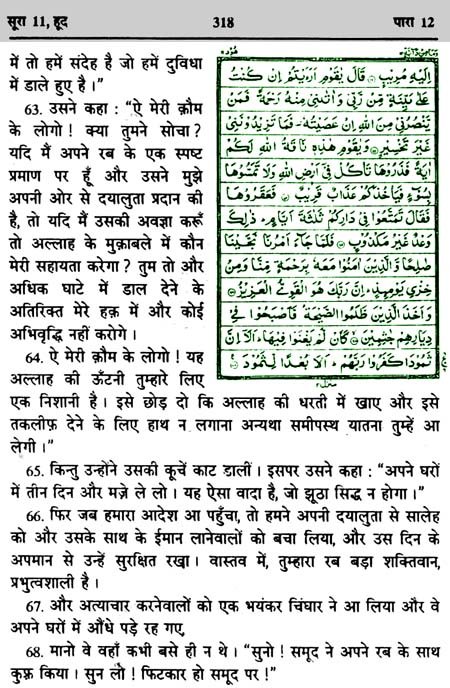 सूरा 11, हूद 318 पारा 12
में तो हमें संदेह है जो हमें दुविधा
में डाले हुए है।”
63. उसने कहा : “ऐ मेरी क़ौम
के लोगो ! क्या तुमने सोचा?
यदि मैं अपने रब के एक स्पष्ट
प्रमाण पर हूँ और उसने मुझे
अपनी ओर से दयालुता प्रदान की
है, तो यदि मैं उसकी अवज्ञा करूँ
तो अल्लाह के मुक़ाबले में कौन
मेरी सहायता करेगा? तुम तो और
अधिक घाटे में डाल देने के
अतिरिक्त मेरे हक़ में और कोई
अभिवृद्धि नहीं करोगे।
64. ऐ मेरी क़ौम के लोगो ! यह
अल्लाह की ऊँटनी तुम्हारे लिए
اِلَيْهِ مُرِيْبٍ قَالَ يٰقَوْمِ اَرَءَيْتُمْ اِنْ كُنْتُ
عَلٰى بَيِّنَةٍ مِّنْ رَّبِّىْ وَاٰتٰىنِىْ مِنْهُ رَحْمَةً فَمَنْ
يَّنْصُرُنِىْ مِنَ اللّٰهِ اِنْ عَصَيْتُهٗ فَمَا تَزِيْدُوْنَنِىْ
غَيْرَ تَخْسِيْرٍ وَيٰقَوْمِ هٰذِهٖ نَاقَةُ اللّٰهِ لَكُمْ
اٰيَةً فَذَرُوْهَا تَاْكُلْ فِىْ اَرْضِ اللّٰهِ وَلَا تَمَسُّوْهَا
بِسُوْٓءٍ فَيَاْخُذَكُمْ عَذَابٌ قَرِيْبٌ فَعَقَرُوْهَا
فَقَالَ تَمَتَّعُوْا فِىْ دَارِكُمْ ثَلٰثَةَ اَيَّامٍ ذٰلِكَ
وَعْدٌ غَيْرُ مَكْذُوْبٍ فَلَمَّا جَآءَ اَمْرُنَا نَجَّيْنَا
صٰلِحًا وَّالَّذِيْنَ اٰمَنُوْا مَعَهٗ بِرَحْمَةٍ مِّنَّا وَمِنْ
خِزْىِ يَوْمِئِذٍ اِنَّ رَبَّكَ هُوَ الْقَوِىُّ الْعَزِيْزُ
وَاَخَذَ الَّذِيْنَ ظَلَمُوا الصَّيْحَةُ فَاَصْبَحُوْا فِىْ
دِيَارِهِمْ جٰثِمِيْنَ كَاَنْ لَّمْ يَغْنَوْا فِيْهَا اَلَآ اِنَّ
ثَمُوْدَا۟ كَفَرُوْا رَبَّهُمْ اَلَا بُعْدًا لِّثَمُوْدَ
एक निशानी है। इसे छोड़ दो कि अल्लाह की धरती में खाए और इसे
तकलीफ़ देने के लिए हाथ न लगाना अन्यथा समीपस्थ यातना तुम्हें आ
लेगी।”
65. किन्तु उन्होंने उसकी कूचें काट डालीं। इसपर उसने कहा : “अपने घरों
में तीन दिन और मज़े ले लो। यह ऐसा वादा है, जो झूठा सिद्ध न होगा।”
66. फिर जब हमारा आदेश आ पहुँचा, तो हमने अपनी दयालुता से सालेह
को और उसके साथ के ईमान लानेवालों को बचा लिया, और उस दिन के
अपमान से उन्हें सुरक्षित रखा। वास्तव में, तुम्हारा रब बड़ा शक्तिवान,
प्रभुत्वशाली है।
67. और अत्याचार करनेवालों को एक भयंकर चिंघार ने आ लिया और वे
अपने घरों में औंधे पड़े रह गए,
68. मानो वे वहाँ कभी बसे ही न थे। “सुनो ! समूद ने अपने रब के साथ
कुफ़्र किया। सुन लो ! फिटकार हो समूद पर !”